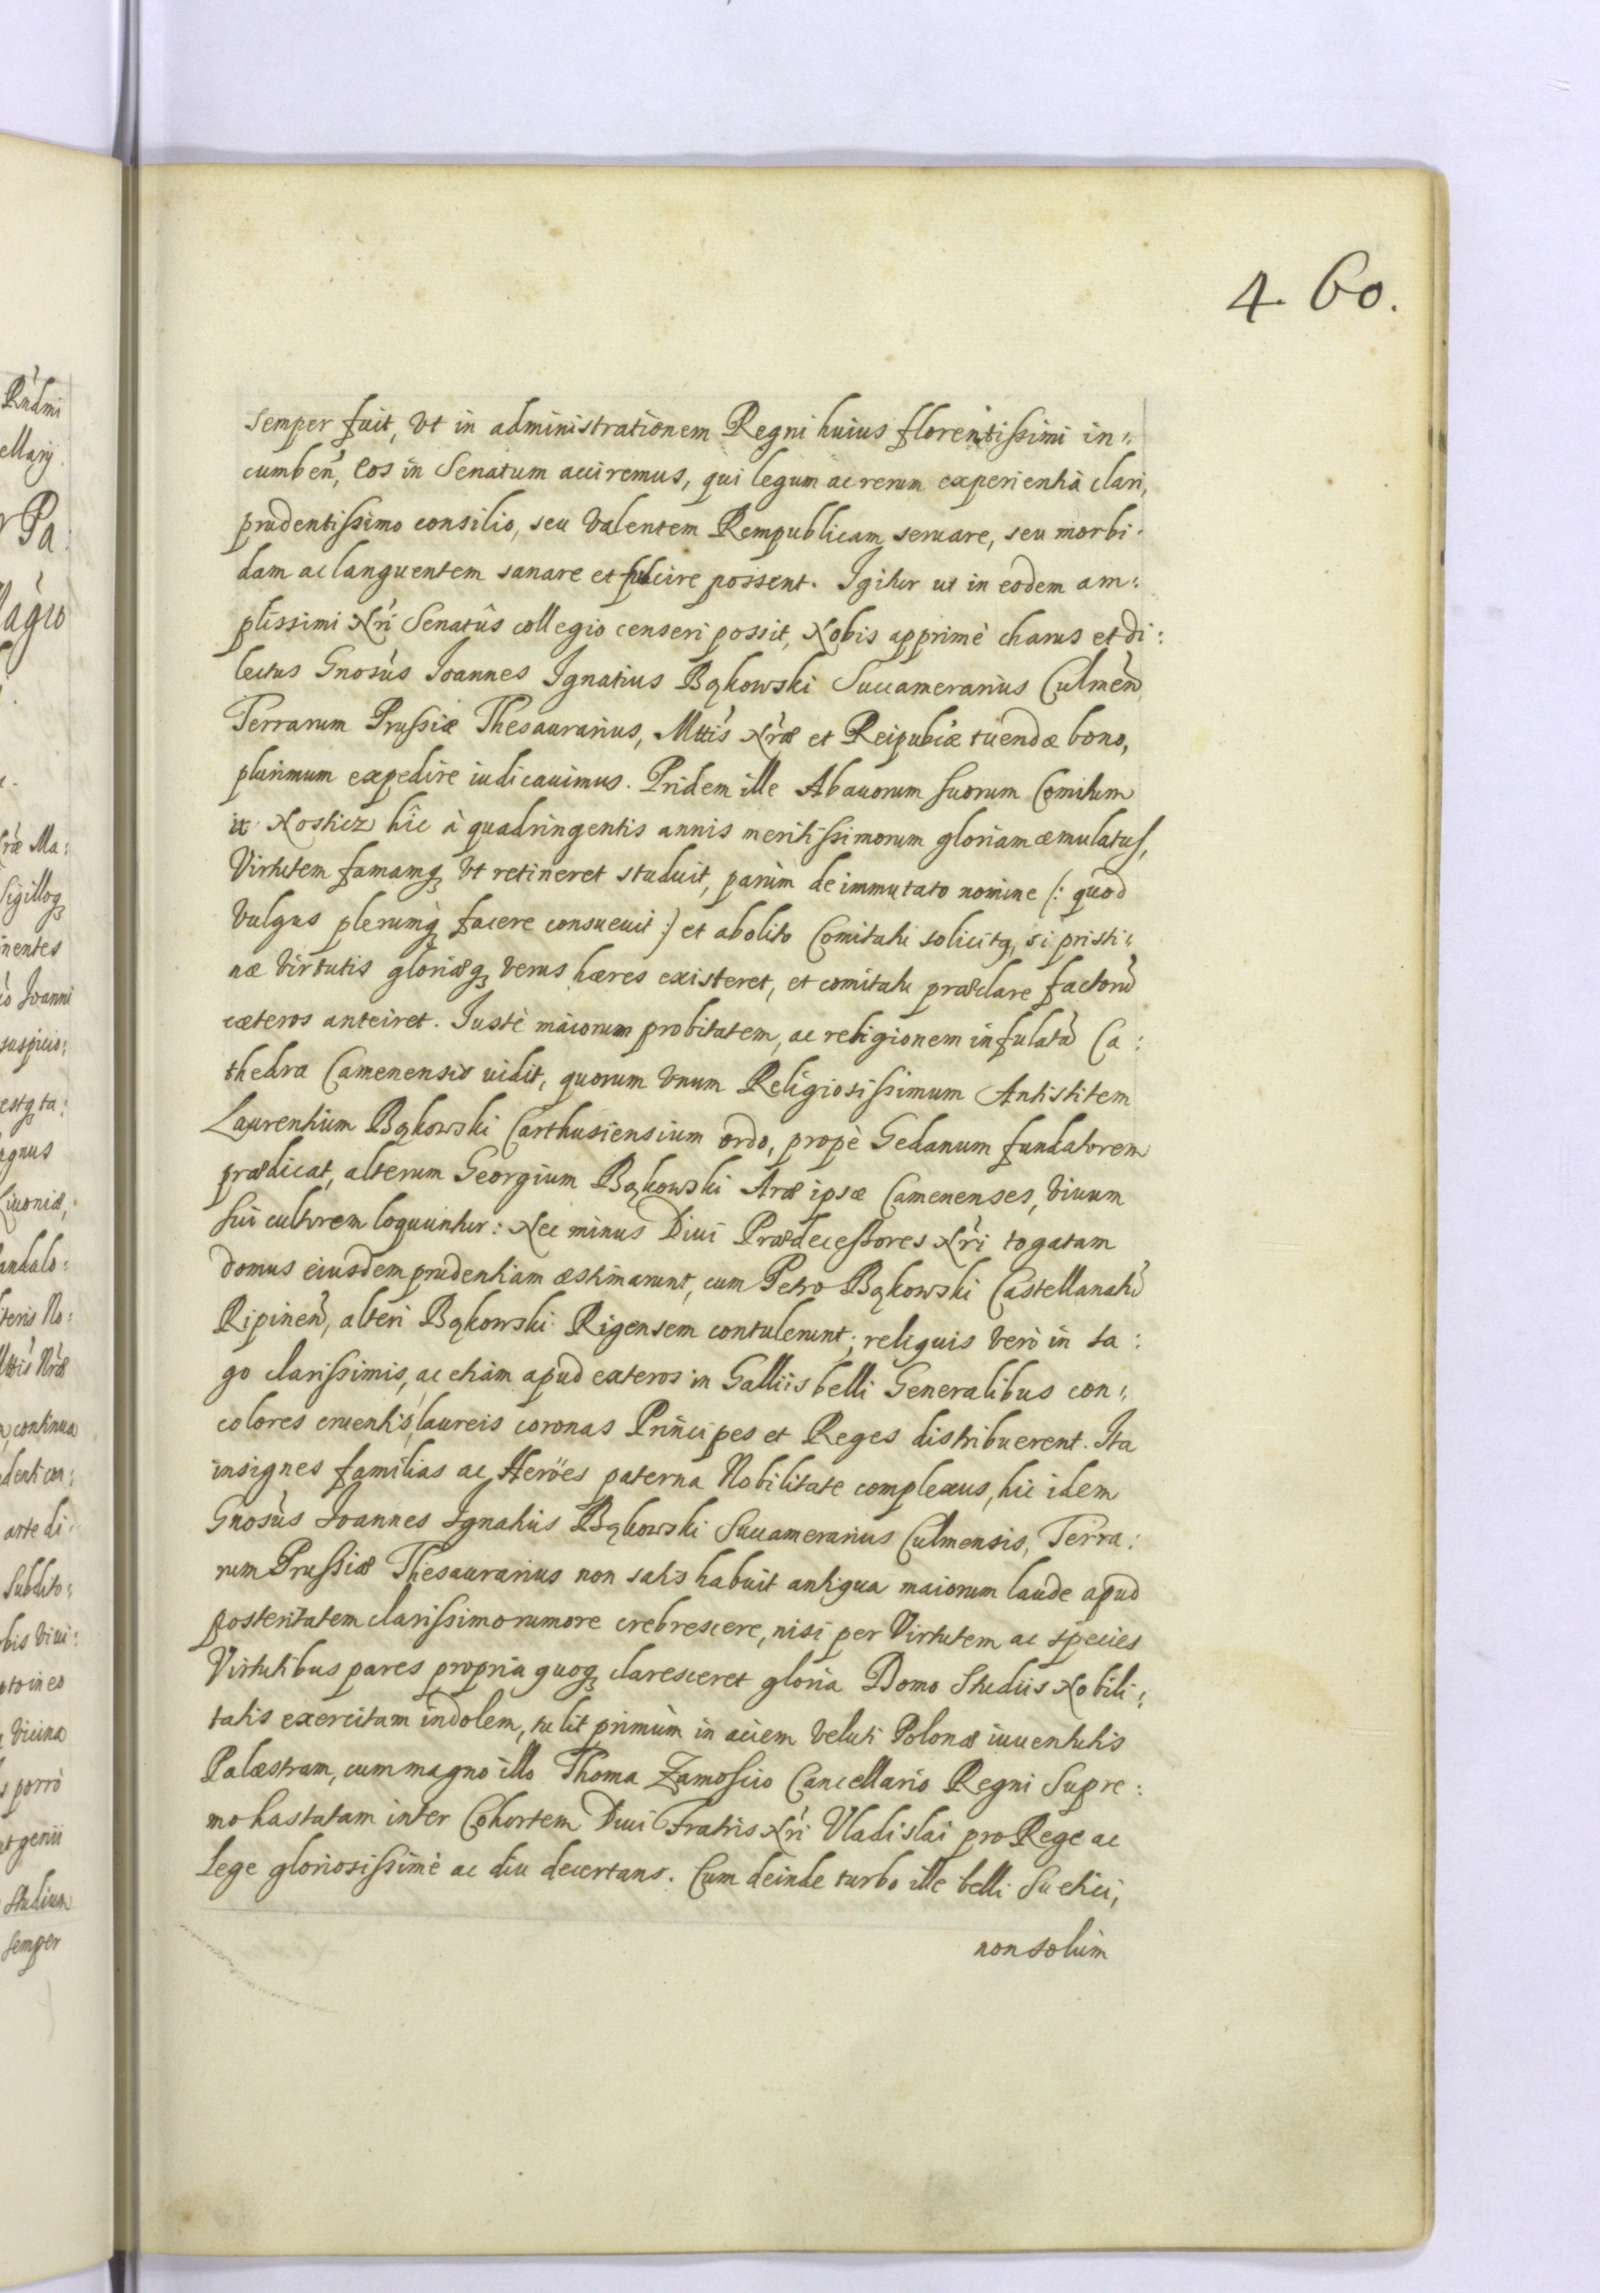 4. 60.
semper fuit, Vt in administrationem Regni huius florentissimi in:
cumben̄, Eos in Senatum acciremus, qui legum ac rerum experientiâ clari,
prudentissimo consilio, seu Valentem Rempublicam seruare, seu morbi:
dam ac languentem sanare et fulcire possent. Igitur ut in eodem am:
plissimi Nrĩ Senatûs collegio censeri possit, Nobis apprimè charus et di:
lectus Gnosùs Joannes Ignatius Bąkowski Succamerarius Culmen̄
Terrarum Prussiæ Thesaurarius, Mttis Nræ et Reipubcæ tuendæ bono,
plurimum expedire iudicauimus. Pridem ille Abauorum suorum Comitum
it Nosticz hîc à quadringentis annis meritissimorum gloriam æmulatus,
Virtutem famamq; Vt retineret studuit, parùm de immutato nomine (: quod
Vulgus plerumq; facere consueuit :) et abolito Comitatu solicitq, si pristi:
næ Virtutis gloriæq; verus hæres existeret, et comitatu præclare factorũ
cæteros anteiret. Iustè maiorum probitatem, ac religionem infulatã Ca:
thedra Camenensis uidit, quorum Vnum Religiosissimum Antistitem
Laurentium Bąkowski Carthusiensium ordo, propè Gedanum fundatorem
prædicat, alterum Georgium Bąkowski Aræ ipsæ Camenenses, Viuum
sui cultorem loquuntur: Nec minus Diui Prædecessores Nrĩ togatam
domus eiusdem prudentiam æstimarunt, cum Petro Bąkowski Castellanatũ
Ripinen̄, alteri Bąkowski Rigensem contulerunt; reliquis verò in sa:
go clarissimis, ac etiam apud exteros in Galliis belli Generalibus con:
colores cruentis, laureis coronas Principes et Reges distribuerent. Ita
insignes familias ac Heröes paterna Nobilitate complexus, hic idem
Gnosùs Joannes Ignatius Bąkowski Succamerarius Culmensis, Terra:
rum Prussiæ Thesaurarius non satis habuit antiqua maiorum laude apud
posteritatem clarissimo rumore crebrescere, nisi per Virtutem ac species
Virtutibus pares propria quoq; claresceret gloria Domo Studiis Nobili:
tatis exercitam indolem, tulit primùm in aciem Veluti Polonæ iuuentutis
Palæstram, cum magno illo Thoma Zamoscio Cancellario Regni Supre:
mo hastatam inter Cohortem Diui Fratris Nrĩ Vladislai pro Rege ac
Lege gloriosissimè ac diu decertans. Cum deinde turbo ille belli Suetici,
non solùm
Rńdmi
ellarij
Pa:
nentes
Joanni
suspicio:
estq ta:
agnus
Liuoniæ,
andalo:
teris No:
Mttis Nræ
continua
denti con:
arte di:
Subdito:
bis Viui:
oto in eo
Vicina
porrò
et genii
Studium
semper